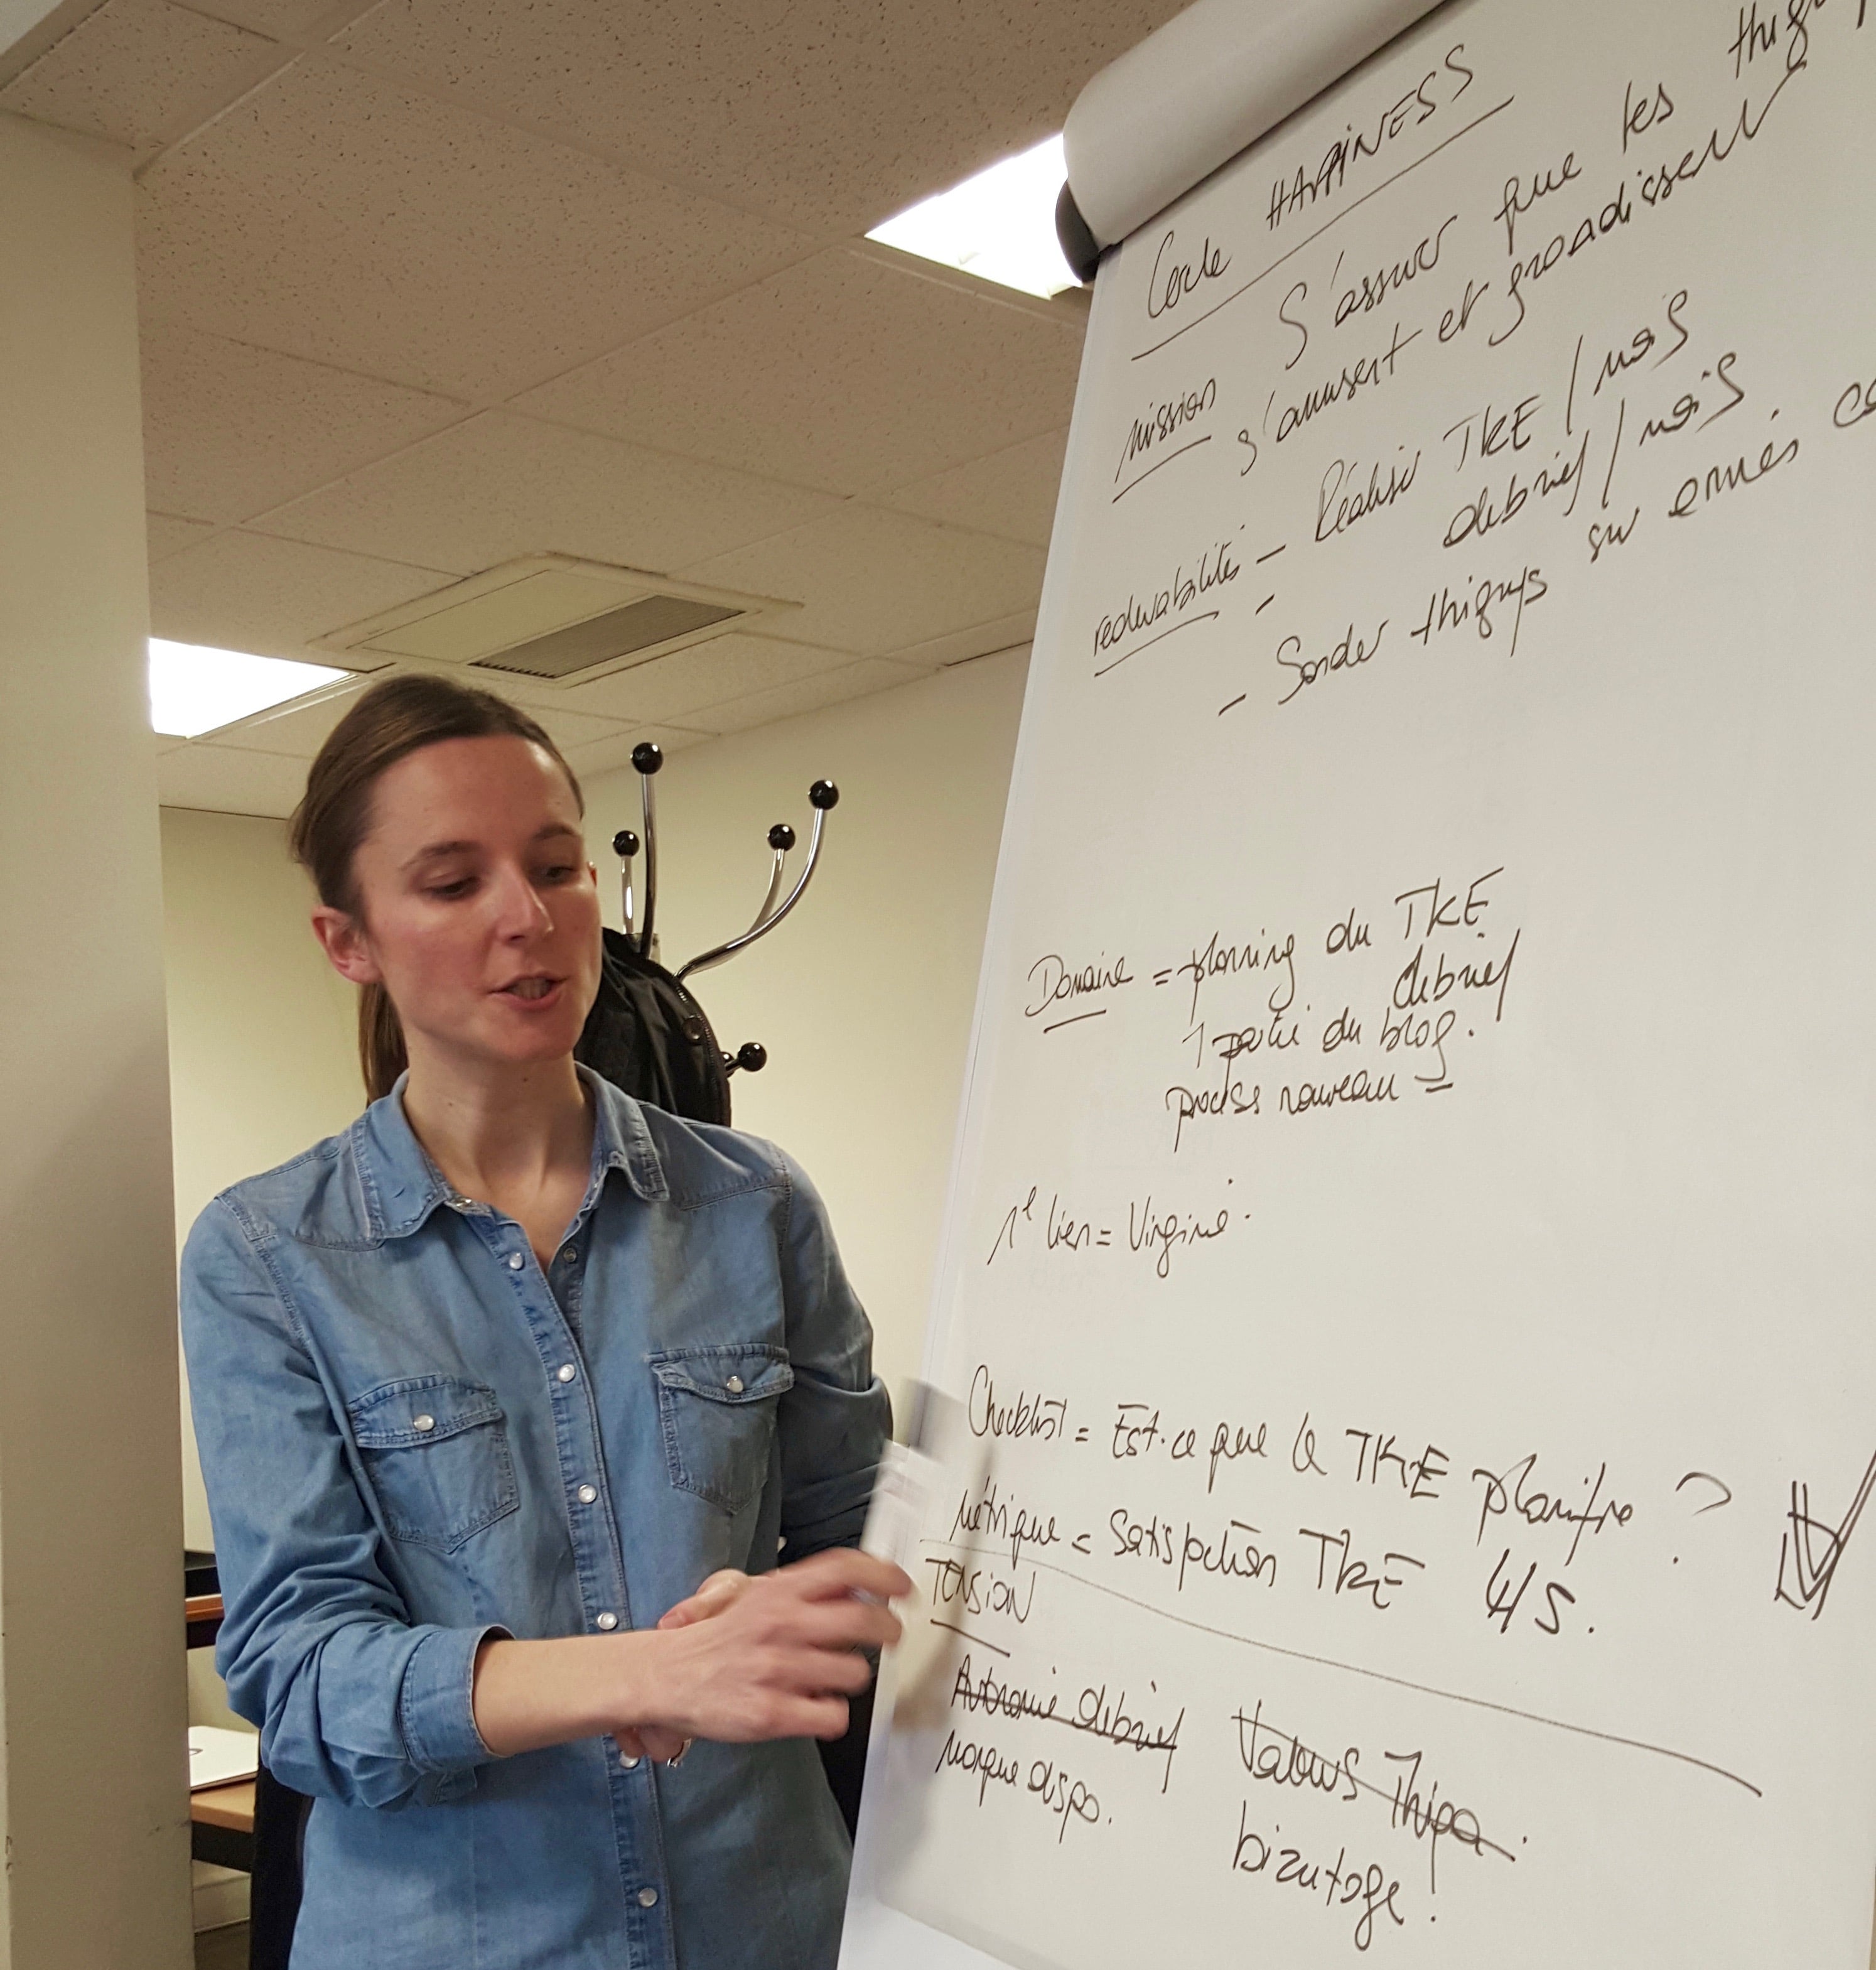 Cercle HAPPINESS
mission S'assurer que les
s'amusent et grandissent
redevabilités - Réaliser TKE / mois
- debrief / mois
- Sonder thiguys sur envies
Domaine = planning du TKE
debrief
1 partie du blog.
process nouveau
1e lien = Virginie.
Checklist = Est-ce que le TKE planifié ?
Métrique = Satisfaction TKE 4/5.
TENSION
Autonomie debrief Valeurs Thiga.
manque dispo. bizutage!